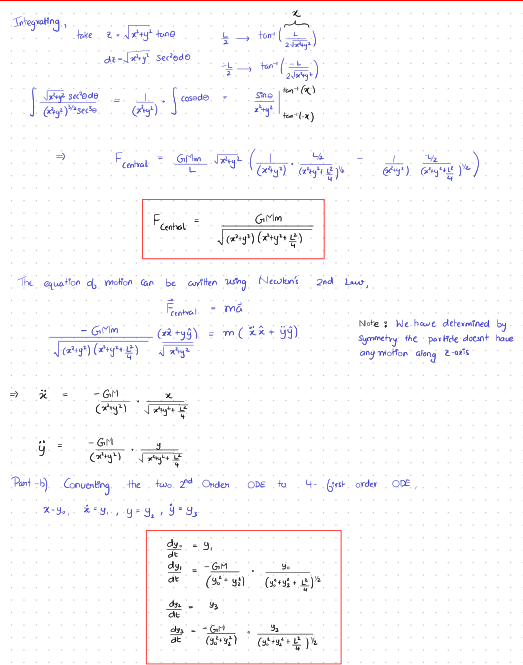 Integrating,
take z = √(x²+y²) tanθ
dz = √(x²+y²) sec²θdθ
x
L/2 → tan⁻¹(L/(2√(x²+y²)))
-L/2 → tan⁻¹(-L/(2√(x²+y²)))
∫ √(x²+y²) sec²θdθ / ((x²+y²)^(3/2) sec³θ) = 1/(x²+y²) · ∫ cosθdθ = sinθ/(x²+y²) | tan⁻¹(x) tan⁻¹(-x)
⇒ F_central = GMm/L √(x²+y²) (1/(x²+y²) · L/2/(x²+y²+L²/4)^(1/2) - 1/(x²+y²) L/2/(x²+y²+L²/4)^(1/2))
F_central = GMm/√((x²+y²)(x²+y²+L²/4))
The equation of motion can be written using Newton's 2nd Law,
F⃗_central = ma⃗
-GMm/√((x²+y²)(x²+y²+L²/4)) (xx̂+yŷ)/√(x²+y²) = m(ẍx̂ + ÿŷ)
Note: We have determined by
symmetry the particle doesnt have
any motion along z-axis
⇒ ẍ = -GM/(x²+y²) · x/√(x²+y²+L²/4)
ÿ = -GM/(x²+y²) · y/√(x²+y²+L²/4)
Part-b) Converting the two 2nd Order ODE to 4- first order ODE,
x=y₀, ẋ=y₁, y=y₂, ẏ=y₃
dy₀/dt = y₁
dy₁/dt = -GM/(y₀²+y₂²) · y₀/(y₀²+y₂²+L²/4)^(1/2)
dy₂/dt = y₃
dy₃/dt = -GM/(y₀²+y₂²) · y₂/(y₀²+y₂²+L²/4)^(1/2)